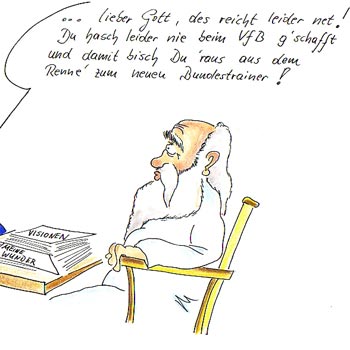 ... lieber Gott, des reicht leider net!
Du hasch leider nie beim VfB g'schafft
und damit bisch Du 'raus aus dem
Renne' zum neuen Bundestrainer!
VISIONEN
MEINE
WUNDER